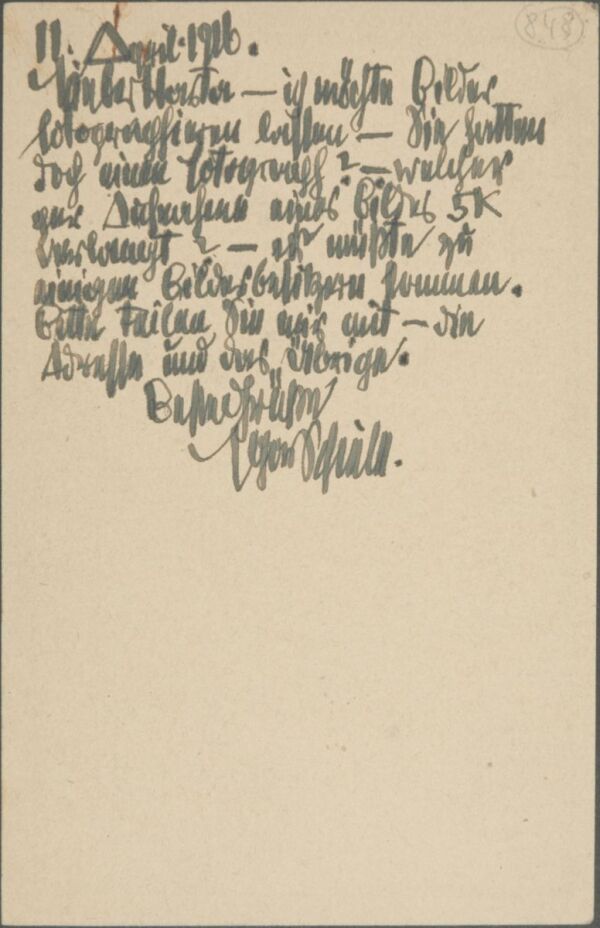 848
11. April 1916.
Lieber Hasta — ich möchte Bilder
fotographieren lassen — Sie hatten
doch einen Fotograph? — welcher
zur Aufnahme eines Bildes 5K
verlangt? — er müßte zu
einigen Bilderbesitzern kommen.
Bitte teilen Sie mir mit — die
Adresse und das Übrige.
Beste Grüße
Egon Schiele.